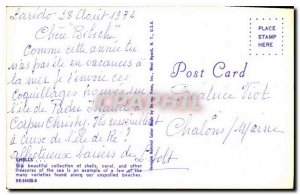 Laredo - 28 Août 1974
Chère "Bibich"
Comme cette année tu
n'as pas été en vacances à
la mer je t'envoie ces
coquillages trouvés sur
l'île de Padre Island à
Corpus Christy. Ils ressemblent
à ceux de l'île de Ré!
affectueux baisers de
SHELLS
The beautiful collection of shells, coral, and other
treasures of the sea is an example of a few of the
many varieties found along our unspoiled beaches.
PLACE
STAMP
HERE
Post Card
Béatrice
Chalons/Marne